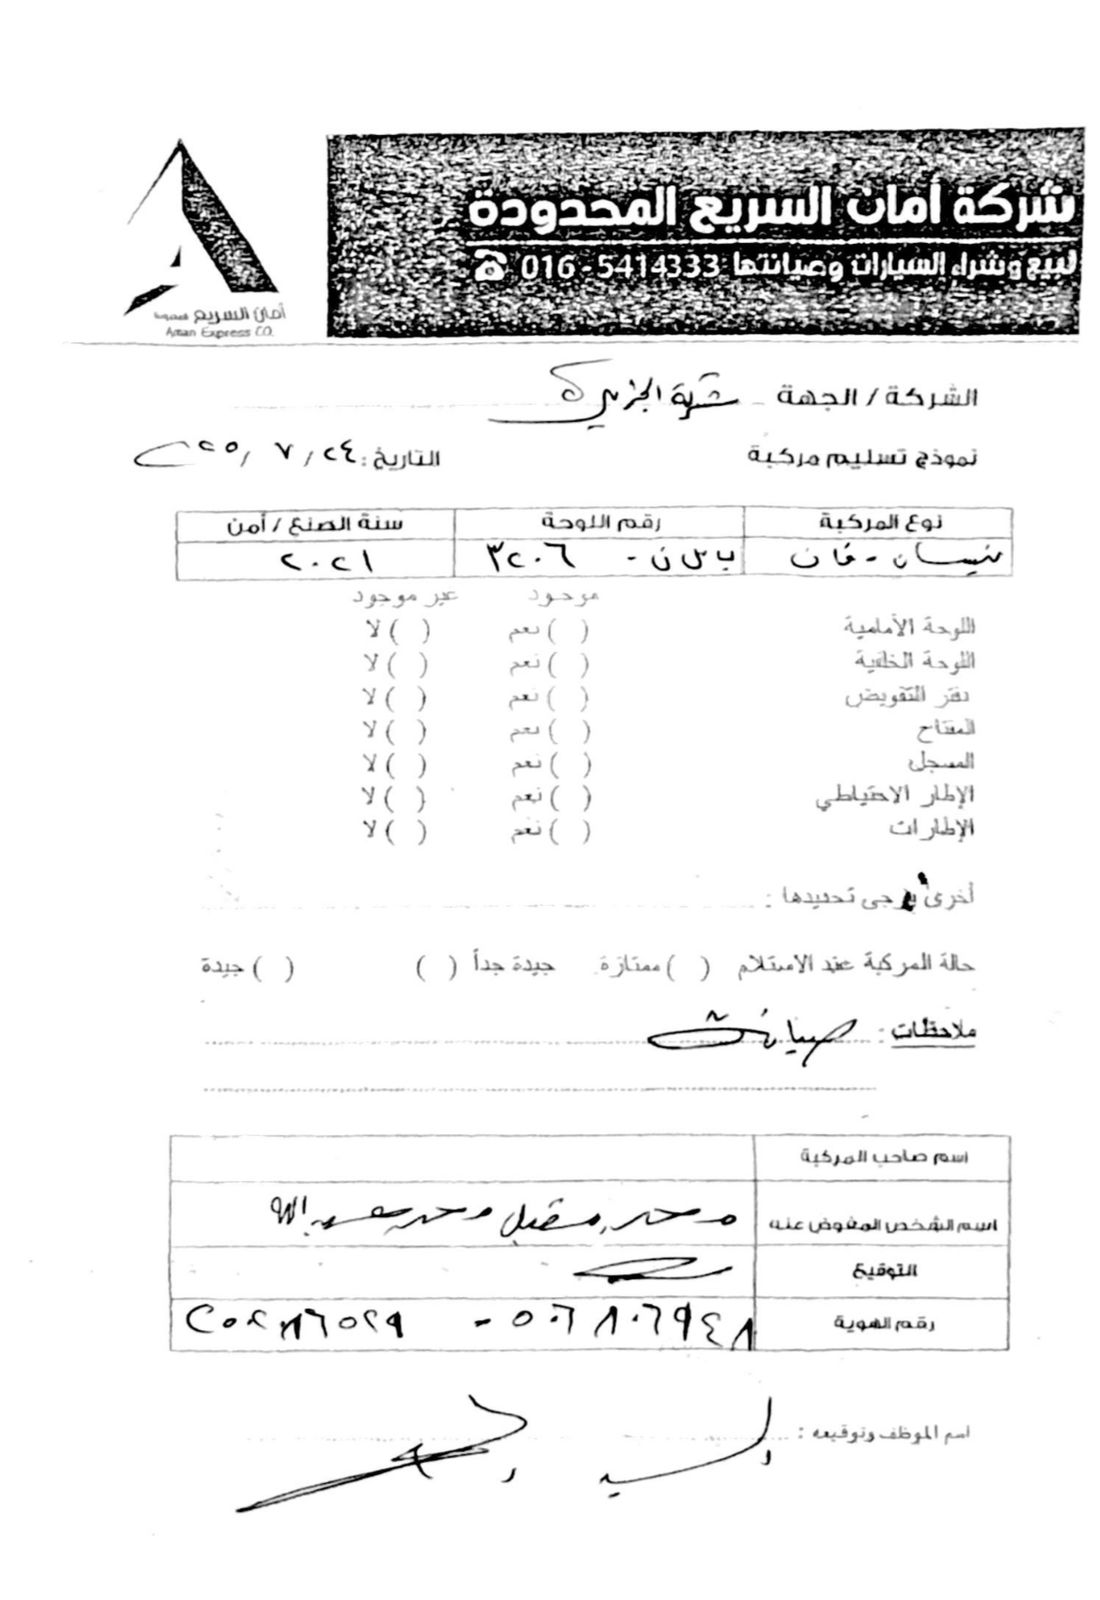 شركة أمان السريع المحدودة
لبيع وشراء السيارات وصيانتها ☎ 016-5414333
أمان السريع المحدودة
Aman Express CO.
الشركة / الجهة - شركة الجزيرة
نموذج تسليم مركبة
التاريخ: ٢٤ / ٧ / ٢٠٢٥
نوع المركبة رقم اللوحة سنة الصنع / أمن
نيسان - فان ٣٢٠٦ - ٢٠٢١
موجود غير موجود
اللوحة الأمامية ( ) نعم ( ) لا
اللوحة الخلفية ( ) نعم ( ) لا
دفتر التفويض ( ) نعم ( ) لا
المفتاح ( ) نعم ( ) لا
المسجل ( ) نعم ( ) لا
الإطار الاحتياطي ( ) نعم ( ) لا
الإطارات ( ) نعم ( ) لا
أخرى يرجى تحديدها :
حالة المركبة عند الاستلام ( ) ممتازة ( ) جيدة جداً ( ) جيدة
ملاحظات : صيانة
اسم صاحب المركبة
اسم الشخص المفوض عنه محمد مقبل محمد عبدالله
التوقيع
رقم الهوية ٠٥٠٦٨٠٦٩٤٨ -
اسم الموظف وتوقيعه : السيد